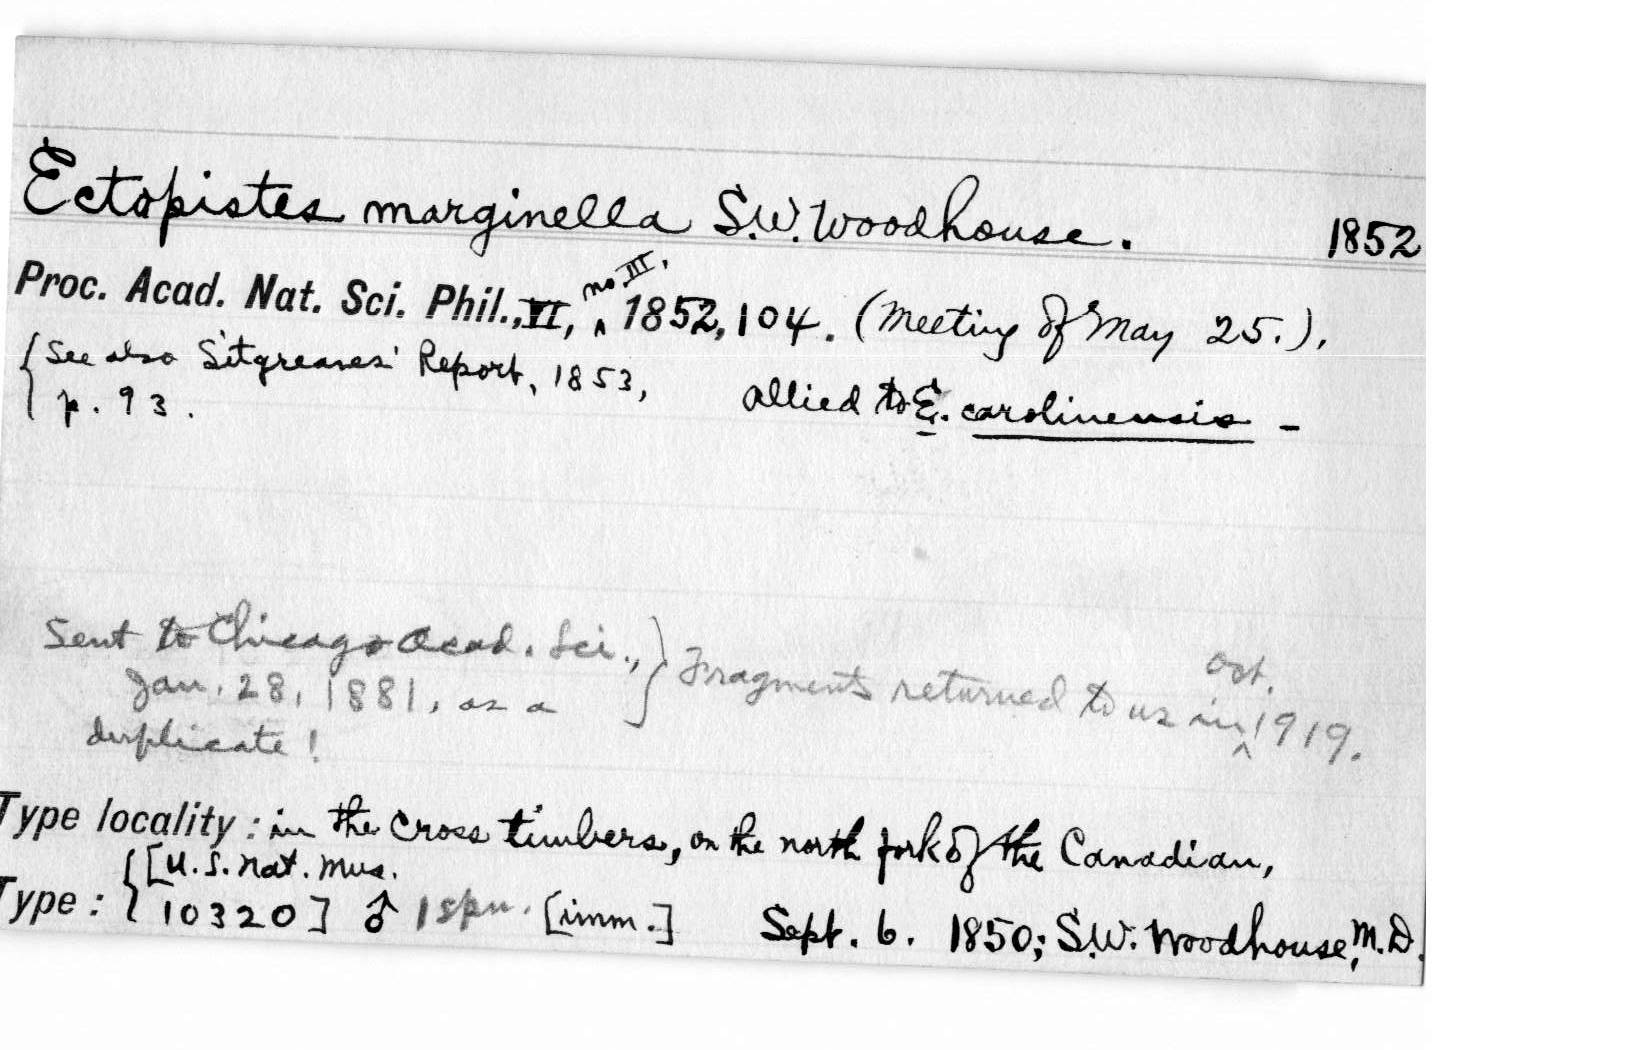 Ectopistes marginella S.W. Woodhouse. 1852
Proc. Acad. Nat. Sci. Phil., VI, no. III, 1852, 104. (Meeting of May 25.).
{ See also Sitgreaves' Report, 1853,
p. 93.
allied to E. carolinensis -
Sent to Chicago Acad. Sci., } Fragments returned to us in Oct. 1919.
Jan. 28, 1881, as a
duplicate!
Type locality: in the cross timbers, on the north fork of the Canadian,
{ [U.S. Nat. Mus.
Type: 10320] ♂ 1 spn. [imm.] Sept. 6. 1850; S.W. Woodhouse, M.D.